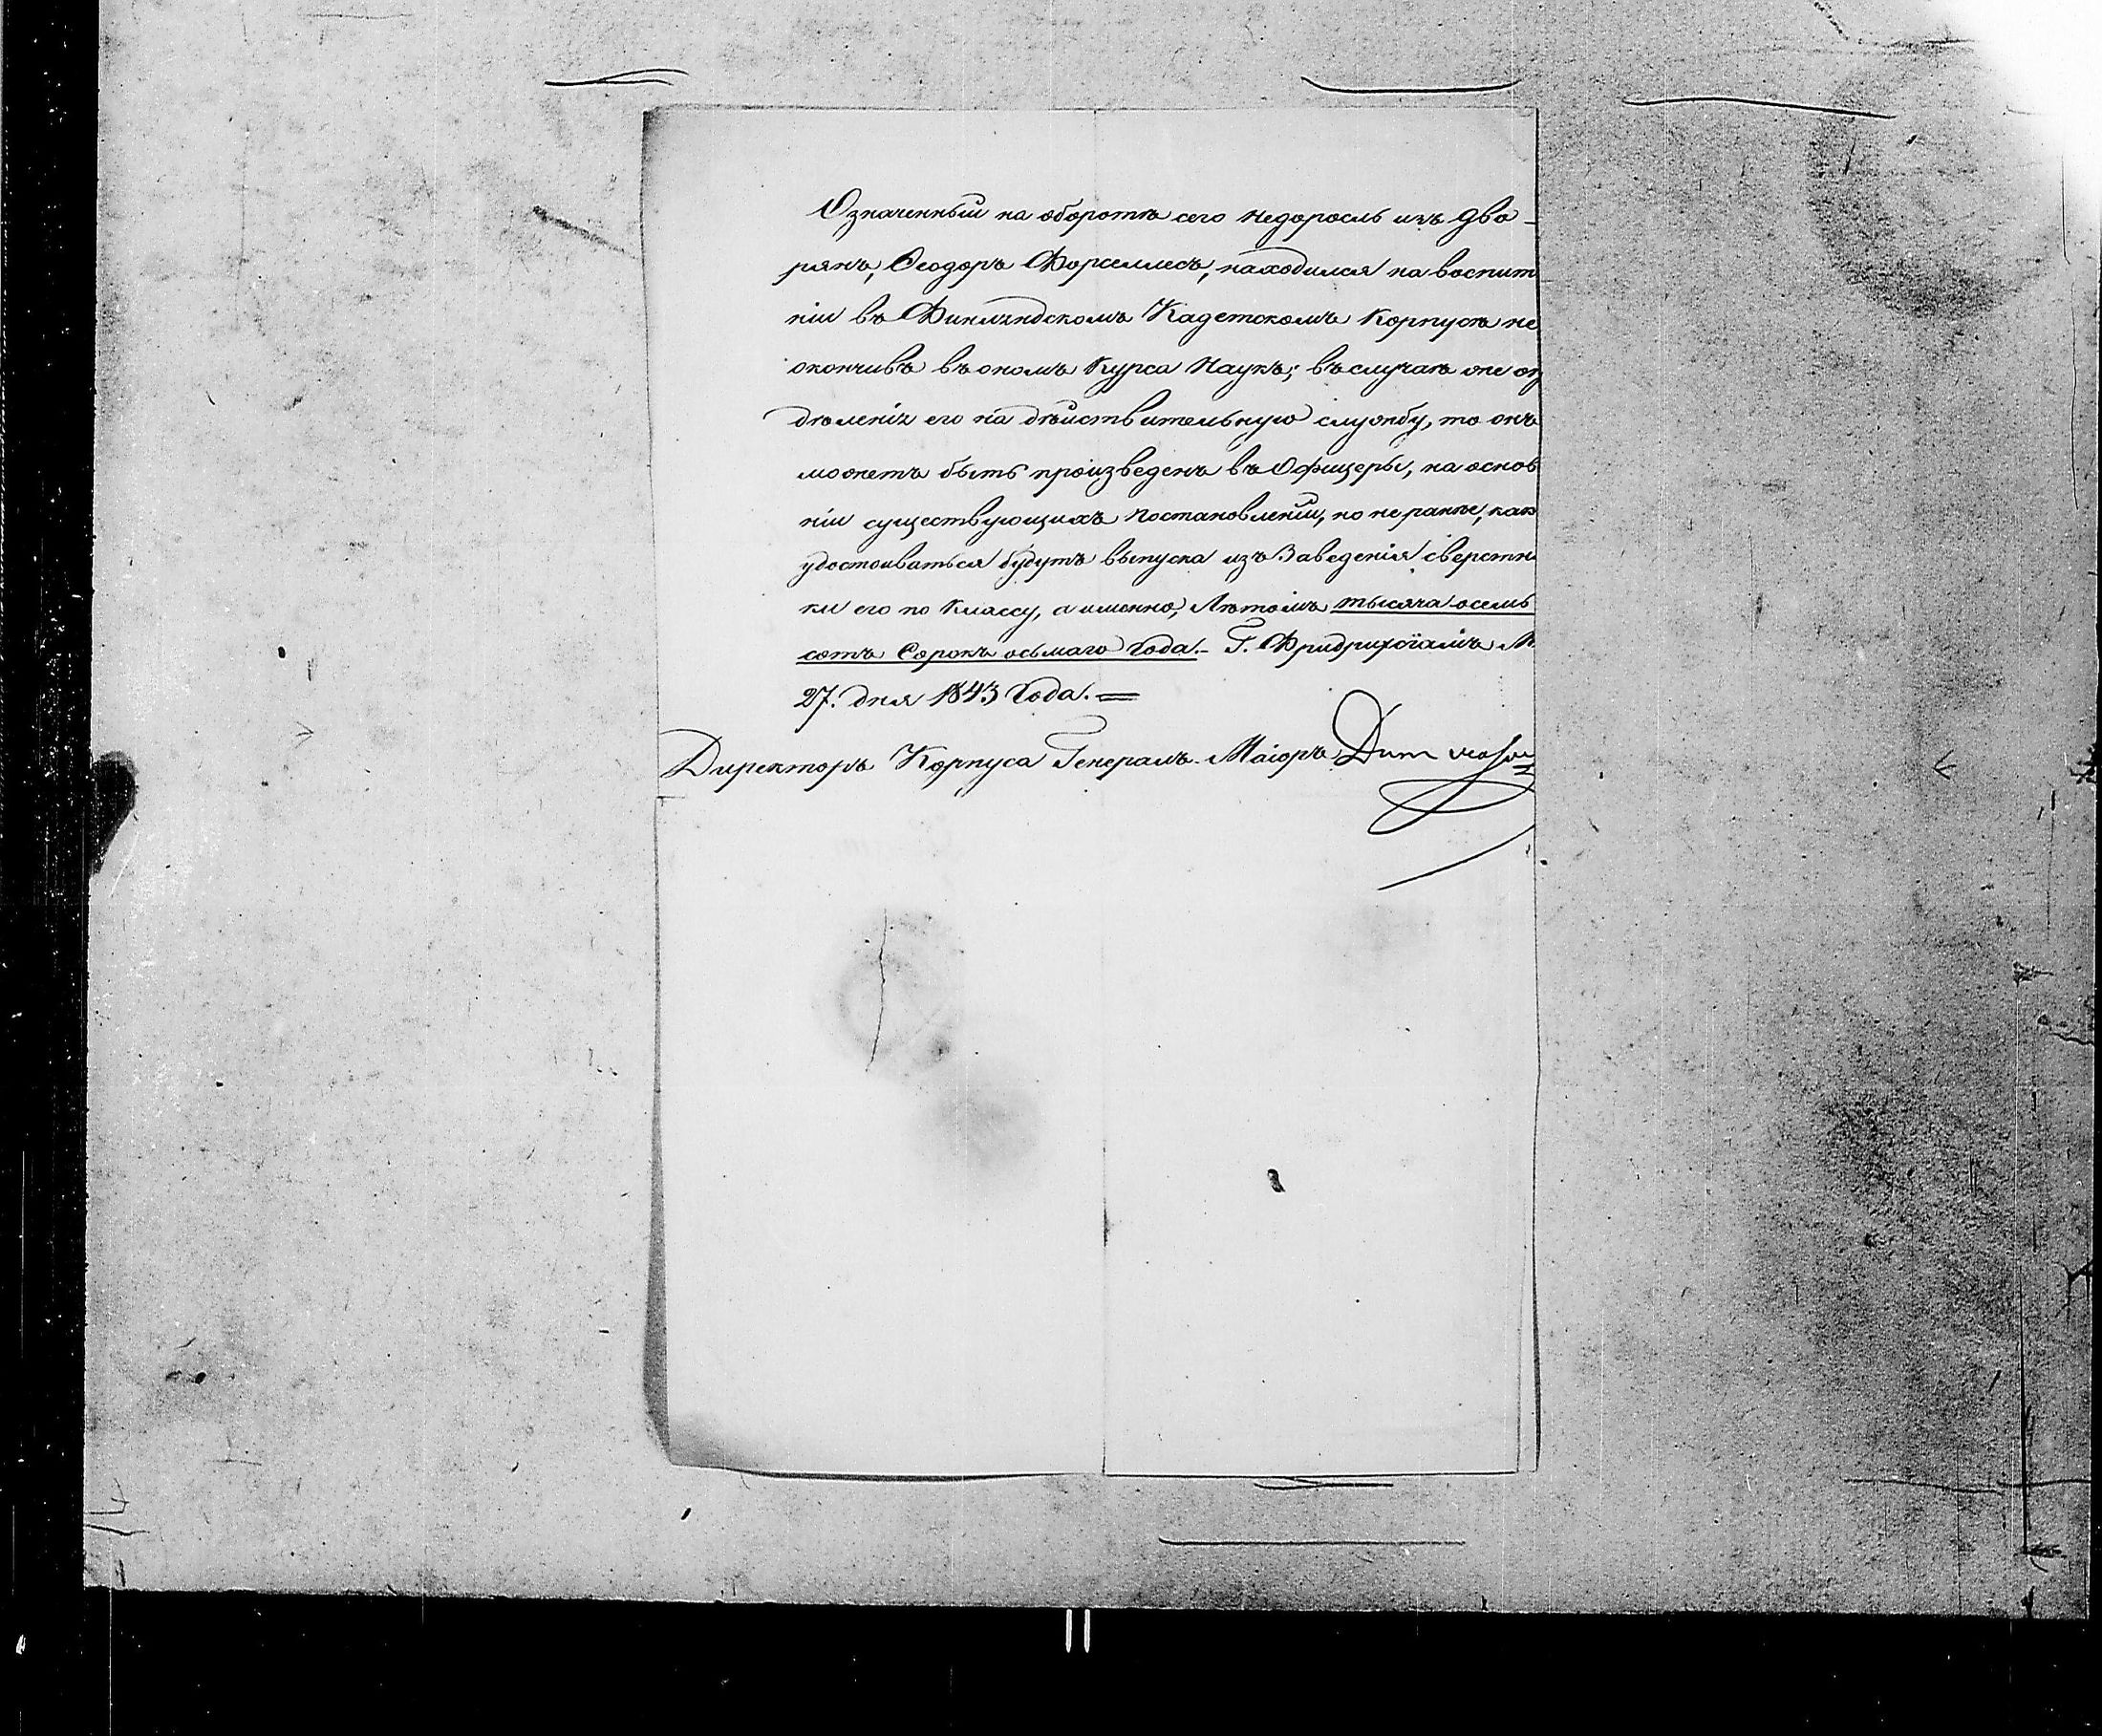 Означенный на оборотѣ сего недоросль изъ дво-
рянъ, Ѳеодоръ Форселлесъ, находился на воспит
ніи въ Финляндскомъ Кадетскомъ Корпусѣ не
окончивъ въ ономъ Курса Наукъ; въ случаѣ же оп
дѣленія его на дѣйствительную службу, то онъ
можетъ быть произведенъ въ Офицеры, на основ
ніи существующихъ постановленій, но не ранѣе, как
удостоиваться будутъ выпуска изъ Заведенія сверстн
ки его по Классу, а именно, Лѣтомъ тысяча осемь
сотъ Сорокъ осьмаго Года.- Г. Фридрихсгамъ М
27. дня 1843 Года.=
Директоръ Корпуса Генералъ-Маіоръ